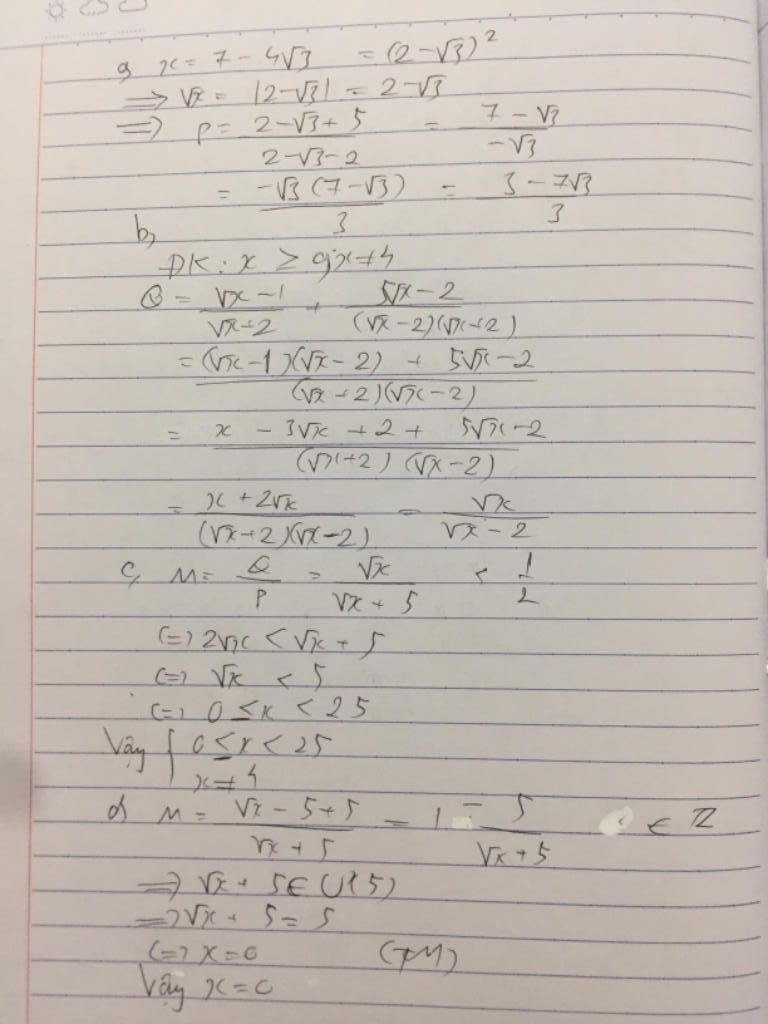 a, x = 7 - 4√3 = (2-√3)²
=> √x = |2-√3| = 2-√3
=> P = (2-√3+5)/(2-√3-2) = (7-√3)/(-√3)
= (-√3(7-√3))/3 = (3-7√3)/3
b,
ĐK: x ≥ 0; x ≠ 4
Q = (√x-1)/(√x+2) + (5√x-2)/((√x-2)(√x+2))
= ((√x-1)(√x-2) + 5√x-2)/((√x+2)(√x-2))
= (x - 3√x + 2 + 5√x-2)/((√x+2)(√x-2))
= (x+2√x)/((√x+2)(√x-2)) = √x/(√x-2)
c, M = Q/P = √x/(√x+5) < 1/2
<=> 2√x < √x + 5
<=> √x < 5
<=> 0 ≤ x < 25
Vậy { 0 ≤ x < 25
x ≠ 4
d, M = (√x-5+5)/(√x+5) = 1 - 5/(√x+5) ∈ Z
=> √x + 5 ∈ Ư(5)
=> √x + 5 = 5
<=> x = 0 (TM)
Vậy x = 0